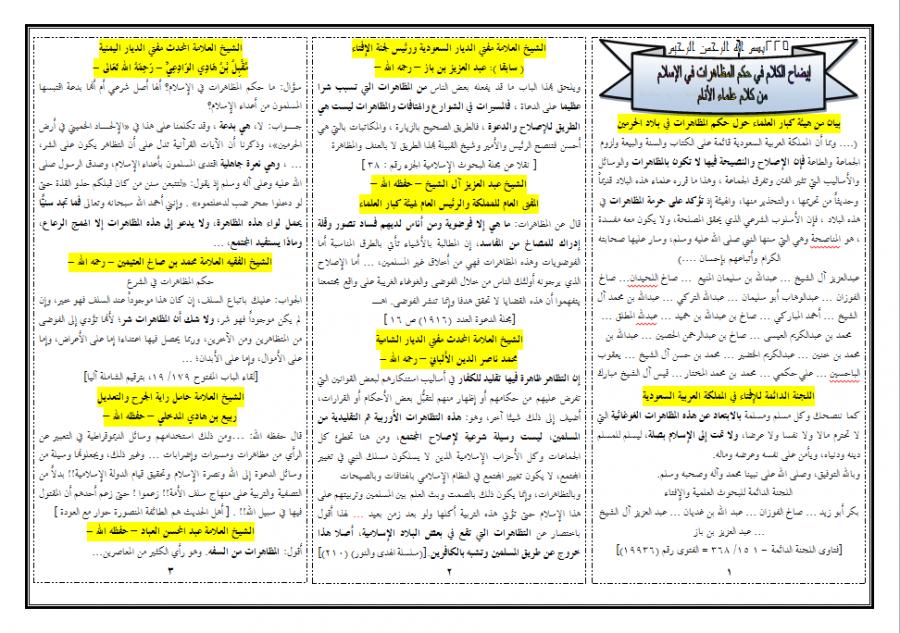 ٢٢٥بسم الله الرحمن الرحيم
إيضاح الكلام في حكم المظاهرات في الإسلام
من كلام علماء الأنام
بيان من هيئة كبار العلماء حول حكم المظاهرات في بلاد الحرمين
(.... وبما أن المملكة العربية السعودية قائمة على الكتاب والسنة والبيعة ولزوم
الجماعة والطاعة فإن الإصلاح والنصيحة فيها لا تكون بالمظاهرات والوسائل
والأساليب التي تثير الفتن وتفرق الجماعة ، وهذا ما قرره علماء هذه البلاد قديمًا
وحديثًا من تحريمها ، والتحذير منها، والهيئة إذ تؤكد على حرمة المظاهرات في
هذه البلاد ، فإن الأسلوب الشرعي الذي يحقق المصلحة، ولا يكون معه مفسدة
، هو المناصحة وهي التي سنها النبي صلى الله عليه وسلم، وسار عليها صحابته
الكرام وأتباعهم بإحسان ....)
عبدالعزيز آل الشيخ ... عبدالله بن سليمان المنيع ... صالح اللحيدان... صالح
الفوزان ... عبدالوهاب أبو سليمان ... عبدالله التركي ... عبدالله بن محمد آل
الشيخ ... أحمد المباركي ... صالح بن عبدالله بن حميد ... عبدالله المطلق ...
محمد بن عبدالكريم العيسى ... صالح بن عبدالرحمن الحصين ... عبدالله بن
محمد بن خنين ... عبدالكريم الخضير ... محمد بن حسن آل الشيخ ... يعقوب
الباحسين ... علي حكمي ... محمد بن محمد المختار ... قيس آل الشيخ مبارك
اللجنة الدائمة للإفتاء في المملكة العربية السعودية
كما ننصحك وكل مسلم ومسلمة بالابتعاد عن هذه المظاهرات الغوغائية التي
لا تحترم مالا ولا نفسا ولا عرضا، ولا تمت إلى الإسلام بصلة، ليسلم للمسلم
دينه ودنياه، ويأمن على نفسه وعرضه وماله.
وبالله التوفيق، وصلى الله على نبينا محمد وآله وصحبه وسلم.
اللجنة الدائمة للبحوث العلمية والإفتاء
بكر أبو زيد ... صالح الفوزان ... عبد الله بن غديان ... عبد العزيز آل الشيخ
... عبد العزيز بن باز
[فتاوى اللجنة الدائمة – ١ ١٥/ ٣٦٨ = الفتوى رقم (١٩٩٣٦)]
١
الشيخ العلامة مفتي الديار السعودية ورئيس لجنة الإفتاء
( سابقا ): عبد العزيز بن باز – رحمه الله –
ويلحق بهذا الباب ما قد يفعله بعض الناس من المظاهرات التي تسبب شرا
عظيما على الدعاة ، فالمسيرات في الشوارع والهتافات والمظاهرات ليست هي
الطريق للإصلاح والدعوة ، فالطريق الصحيح بالزيارة ، والمكاتبات بالتي هي
أحسن فتنصح الرئيس والأمير وشيخ القبيلة بهذا الطريق لا بالعنف والمظاهرة
[ نقلا عن مجلة البحوث الإسلامية الجزء رقم : ٣٨ ]
الشيخ عبد العزيز آل الشيخ – حفظه الله –
المفتي العام للمملكة والرئيس العام لهيئة كبار العلماء
قال عن المظاهرات: ما هي إلا فوضوية ومن أناس لديهم فساد تصور وقلة
إدراك للمصالح من المفاسد، إن المطالبة بالأشياء تأتي بالطرق المناسبة أما
الفوضويات وهذه المظاهرات فهي من أخلاق غير المسلمين، ... أما الإصلاح
الذي يرجونه أولئك الناس من خلال الفوضى والغوغاء الغربية على واقع مجتمعنا
يتفهموا أن هذه القضايا لا تحقق هدفا وإنما تنشر الفوضى. اهـ
[مجلة الدعوة العدد (١٩١٦) ص ١٦ ]
الشيخ العلامة المحدث مفتي الديار الشامية
محمد ناصر الدين الألباني – رحمه الله –
إن التظاهر ظاهرة فيها تقليد للكفار في أساليب استنكارهم لبعض القوانين التي
تفرض عليهم من حكامهم أو إظهار منهم لتقبُّل بعض الأحكام أو القرارات،
أضيف إلى ذلك شيئا آخر، وهو: هذه التظاهرات الأوربية ثم التقليدية من
المسلمين، ليست وسيلة شرعية لإصلاح المجتمع، ومن هنا تخطئ كل
الجماعات وكل الأحزاب الإسلامية الذين لا يسلكون مسلك النبي في تغيير
المجتمع، لا يكون تغيير المجتمع في النظام الإسلامي بالهتافات وبالصيحات
وبالتظاهرات، وإنما يكون ذلك بالصمت وبث العلم بين المسلمين وتربيتهم على
هذا الإسلام حتى تؤتي هذه التربية أكلها ولو بعد زمن بعيد ... لهذا أقول
باختصار عن التظاهرات التي تقع في بعض البلاد الإسلامية، أصلا هذا
خروج عن طريق المسلمين وتشبه بالكافرين. [سلسلة الهدى والنور) (٢١٠)]
٢
الشيخ العلامة المحدث مفتي الديار اليمنية
مُقْبِلُ بْنُ هَادِي الْوَادِعِيِّ – رَحِمَهُ الله تَعَالى –
سؤال: ما حكم المظاهرات في الإسلام؟ ألها أصل شرعي أم أنها بدعة اقتبسها
المسلمون من أعداء الإسلام؟
جواب: لا، هي بدعة ، وقد تكلمنا على هذا في «الإلحاد الخميني في أرض
الحرمين»، وذكرنا أن الآيات القرآنية تدل على أن التظاهر يكون على الشر،
... ، وهي نعرة جاهلية اقتدى المسلمون بأعداء الإسلام، وصدق الرسول صلى
الله عليه وعلى آله وسلم إذ يقول: «لتتبعن سنن من كان قبلكم حذو القذة حتى
لو دخلوا جحر ضب لدخلتموه» . وإنني أحمد الله سبحانه وتعالى فما تجد سنيًّا
يحمل لواء هذه المظاهرة، ولا يدعو إلى هذه المظاهرات إلا الهمج الرعاع،
وماذا يستفيد المجتمع، ...
الشيخ الفقيه العلامة محمد بن صالح العثيمين – رحمه الله –
حكم المظاهرات في الشرع
الجواب: عليك باتباع السلف، إن كان هذا موجوداً عند السلف فهو خير، وإن
لم يكن موجوداً فهو شر، ولا شك أن المظاهرات شر؛ لأنها تؤدي إلى الفوضى
من المتظاهرين ومن الآخرين، وربما يحصل فيها اعتداء؛ إما على الأعراض، وإما
على الأموال، وإما على الأبدان؛ ...
[لقاء الباب المفتوح ١٧٩/ ١٩، بترقيم الشاملة آليا]
الشيخ العلامة حامل راية الجرح والتعديل
ربيع بن هادي المدخلي – حفظه الله –
قال حفظه الله: ...ومن ذلك استخدامهم وسائل الديموقراطية في التعبير عن
الرأي من مظاهرات ومسيرات وإضرابات ... وغير ذلك، ويجعلونها وسيلة من
وسائل الدعوة إلى الله ونصرة الإسلام وتحقيق قيام الدولة الإسلامية!! بدلاً من
التصفية والتربية على منهاج سلف الأمة!! زعموا ! حتى زعم أحدهم أن المقتول
فيها في سبيل الله!! . [ أهل الحديث هم الطائفة المنصورة حوار مع العودة ]
الشيخ العلامة عبد المحسن العباد – حفظه الله –
أقول: المظاهرات من السفه. وهو رأي الكثير من المعاصرين...
٣